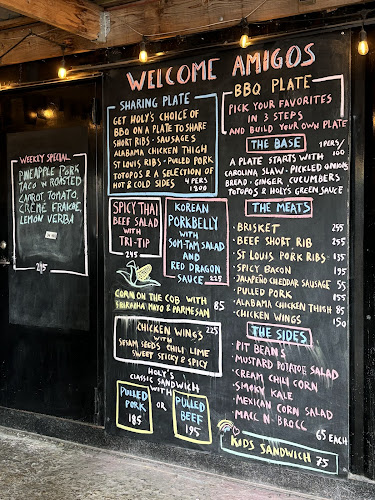 WELCOME AMIGOS
WEEKLY SPECIAL
PINEAPPLE PORK
TACO W ROASTED
CARROT, TOMATO,
CRÈME FRAICHE,
LEMON VERBA
245
SHARING PLATE
GET HOLY'S CHOICE OF
BBQ ON A PLATE TO SHARE
SHORT RIBS · SAUSAGES
ALABAMA CHICKEN THIGH
ST LOUIS RIBS · PULLED PORK
TOTOPOS & A SELECTION OF
HOT & COLD SIDES 4 PERS
1300
SPICY THAI
BEEF SALAD
WITH
TRI-TIP
245
KOREAN
PORKBELLY
WITH
SOM-TAM SALAD
AND
RED DRAGON
SAUCE 225
CORN ON THE COB WITH
SRIRACHA MAYO & PARMESAN 85
CHICKEN WINGS 225
WITH
SESAM SEEDS CHILI LIME
SWEET STICKY & SPICY
HOLY'S
CLASSIC SANDWICH
WITH
PULLED
PORK
185
OR
PULLED
BEEF
195
BBQ PLATE
PICK YOUR FAVORITES
IN 3 STEPS
AND BUILD YOUR OWN PLATE
THE BASE 1PERS/
100
A PLATE STARTS WITH
CAROLINA SLAW · PICKLED ONIONS
BREAD · GINGER CUCUMBERS
TOTOPOS & HOLY'S GREEN SAUCE
THE MEATS
· BRISKET 255
· BEEF SHORT RIB 255
· ST LOUIS PORK RIBS 135
· SPICY BACON 195
· JALAPEÑO CHEDDAR SAUSAGE 55
· PULLED PORK 155
· ALABAMA CHICKEN THIGH 85
· CHICKEN WINGS 150
THE SIDES
· PIT BEANS
· MUSTARD POTATOE SALAD
· CREAM CHILI CORN
· SMOKY KALE
· MEXICAN CORN SALAD
· MACC N-BROCC
65 EACH
KIDS SANDWICH 75